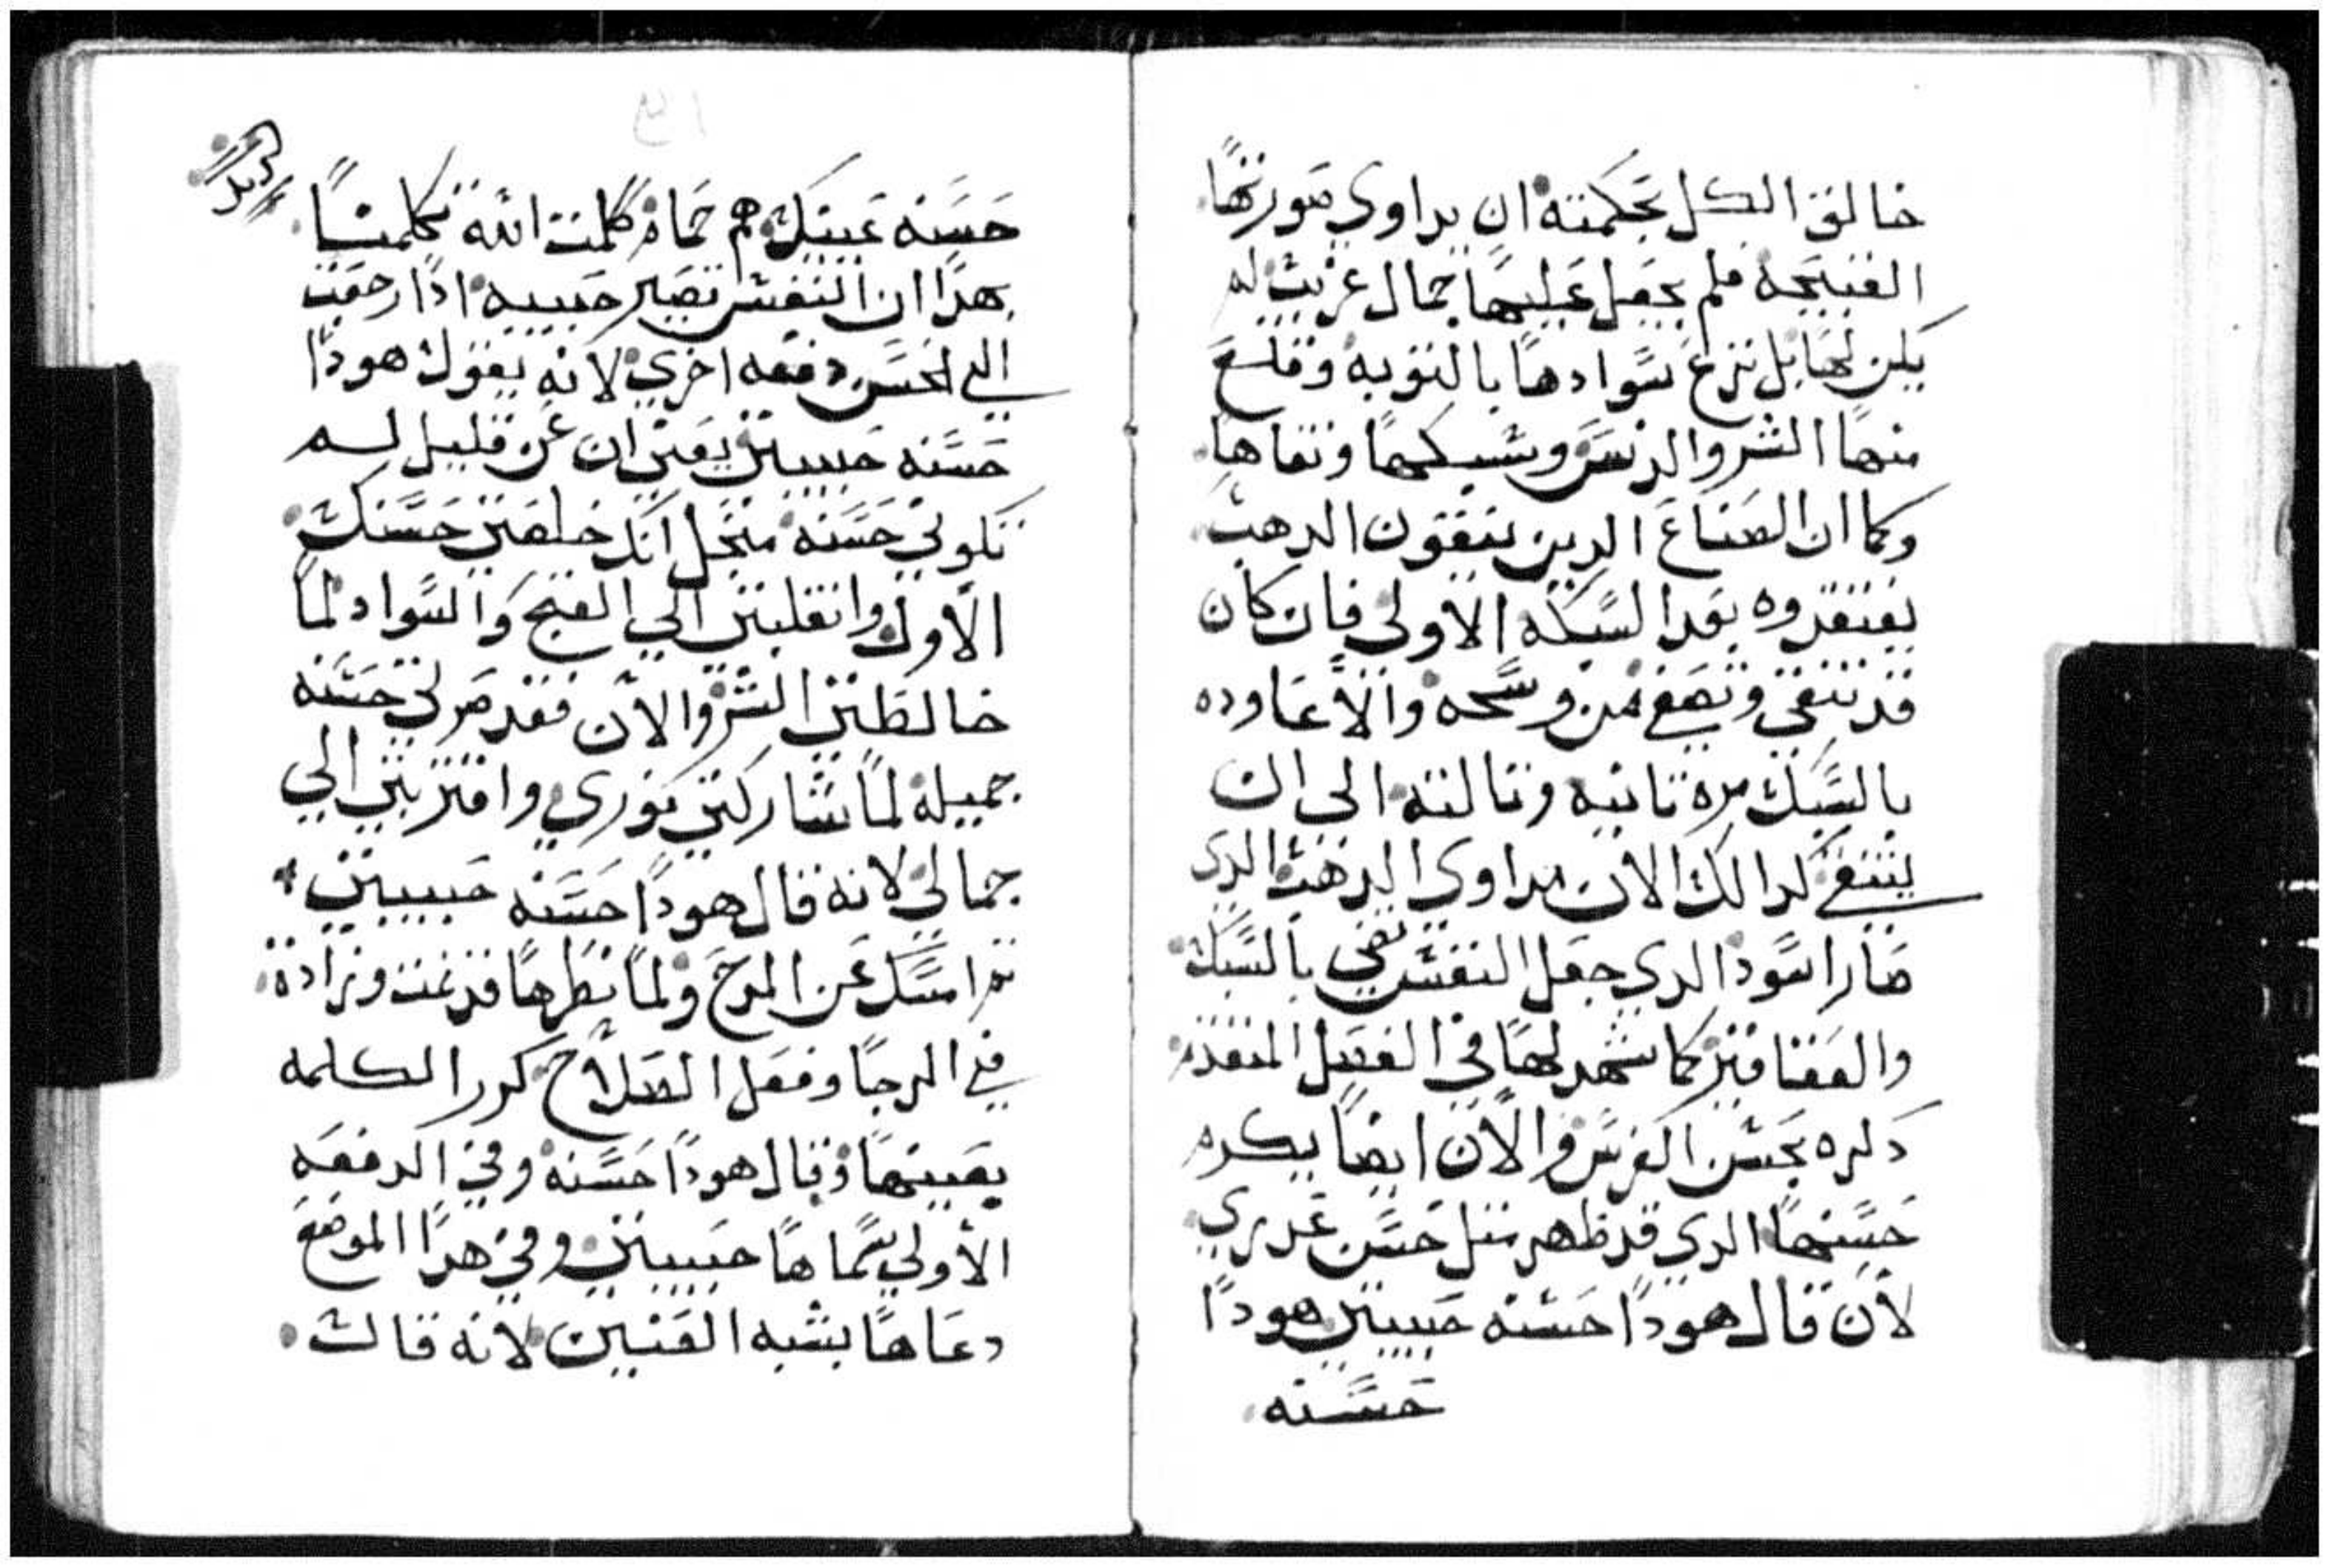 خالق الكل بحكمته ان يداوي صورتها
القبيحه فلم يجعل عليها جمال غريب لم
يكن لها بل نزع سوادها بالتوبه وقلع
منها الشر والدنس وسبكها ونقاها
وكما ان الصناع الدين ينقون الدهب
يفتقدوه بعد السبكه الاولي فان كان
قد تنقي وتصفي من وسخه والا عاوده
بالسبك مره تانيه وتالته الى ان
ينتقي كدالك الان مداوي الدهب الدي
صار اسود الدي جعل النفس نقي بالسبك
والعقاقير كما شهد لها في الفصل المتقدم
دكره بحسن الفرس والان ايضا يكرم
حسنها الدي قد ظهر متل حسن عدري
لان قال هودا حسنه حبيبتي هودا
حسنه
حسنه عينيك هم حمام كلمت الله تكلمنا
بهدا ان النفس تصير حبيبه ادا رجعت
الي الحسن دفعه اخري لانه يقول هودا
حسنه حبيبتي يعني ان عن قليل لم
تكوني حسنه منجل انك خلعتي حسنك
الاول وانقلبتي الي القبح والسواد لما
خالطتي الشر والان فقد صرتي حسنه
جميله لما شاركتي نوري واقتربتي الي
جمالي لانه قال هودا حسنه حبيبتي
تم امسك عن المدح ولما نظرها قد نمت وزادة
في الرجا وفعل الصلاح كرر الكلمه
بعينها وقال هودا حسنه وفي الدفعه
الاولي سماها حبيبتي وفي هدا الموضع
دعاها بشبه العنين لانه قال